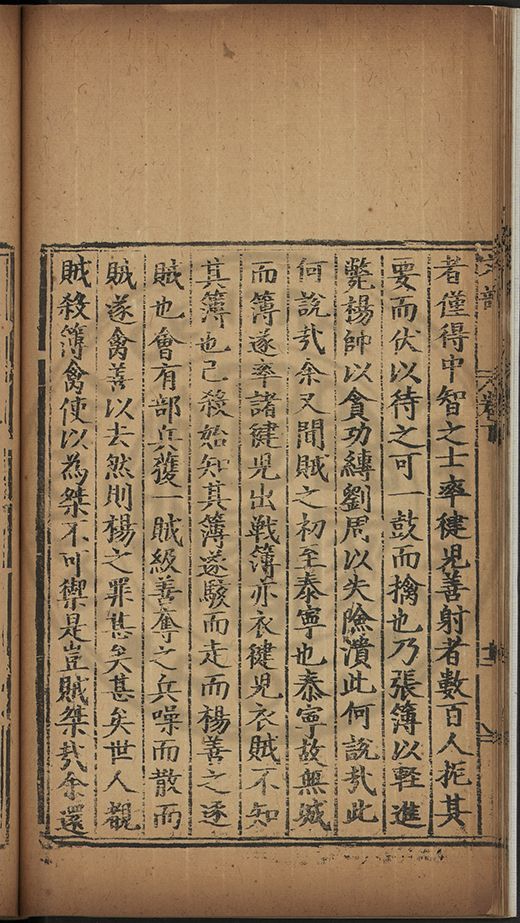 者僅得中智之士率徤児善射者數百人扼其
要而伏以待之可一鼓而擒也乃張簿以軽進
斃楊帥以貪功縛劉周以失險潰此何說㢤此
何說㢤余又聞賊之初至泰寧也泰寧故無城
而簿遂率諸徤児出戦簿亦衣徤児衣賊不知
其簿也己殺始知其簿遂駭而走而楊善之逐
賊也會有部兵獲一賊級善奪之兵噪而散而
賊遂禽善以去然則楊之罪甚矣甚矣世人觀
賊殺簿禽使以為桀不可禦是豈賊桀㢤余還